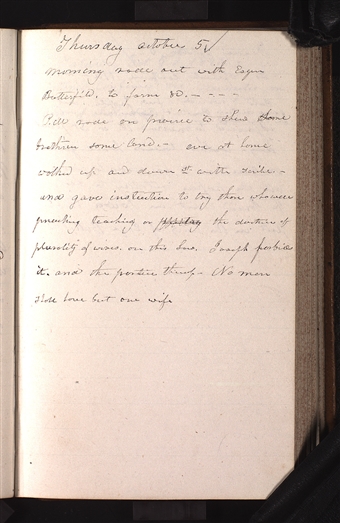 Thursday october 5
morning rode out with Esqr
Butterfield, to farm &c. — - - -
P.M. rode on prairie to shew some
brethren some land. — eve at home
walked up and down St with scribe —
and gave instruction to try those who were
preaching teaching or the doctrine of
plurality of wives. on this Law. Joseph forbids
it. and the practice thereof — No man
shall have but one wife